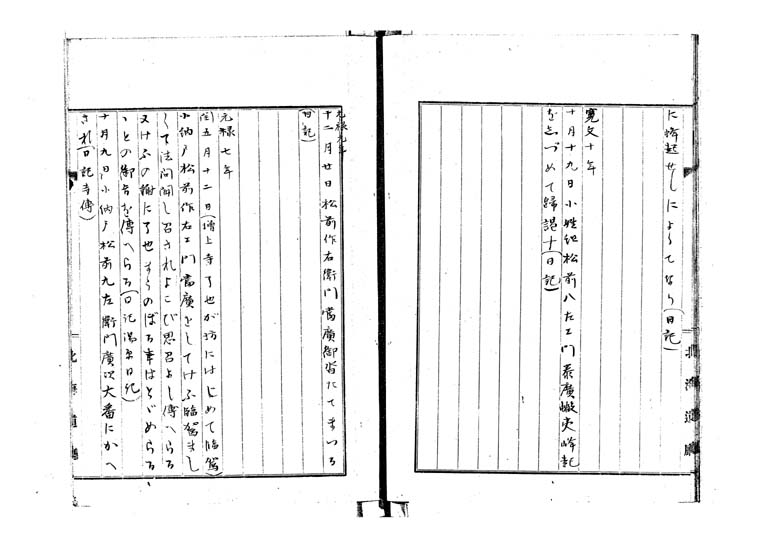 に蜂起せしによりてなり(日記)
寛文十年
十月十九日小姓組松前八左エ門泰廣蝦夷蜂起
をしづめて歸謁す(日記)
北海道廳
元禄元年
十二月廿日松前作右衛門當廣御沓たてまつる
(日記)
元禄七年
閏五月十二日(増上寺了也が坊にはじめて臨駕)
小納戸松前作右エ門當廣をしてけふ臨駕まし
して法問聞し召されよろこび思召よし傳へらる
又けふの謝に了也まうのぼる事はとゞめらる
ゝとの御旨を傳へらる(日記湯原日記)
十月九日小納戸松前九左衛門廣次大番にかへ
され(日記寺傳)
北海道廳